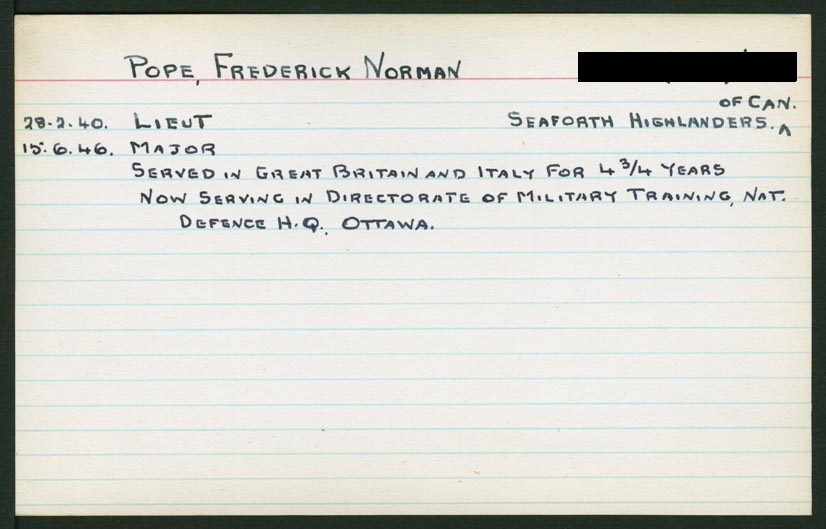 POPE, FREDERICK NORMAN
28.2.40. LIEUT SEAFORTH HIGHLANDERS. ^ OF CAN.
15.6.46. MAJOR
SERVED IN GREAT BRITAIN AND ITALY FOR 4 3/4 YEARS
NOW SERVING IN DIRECTORATE OF MILITARY TRAINING, NAT.
DEFENCE H.Q., OTTAWA.